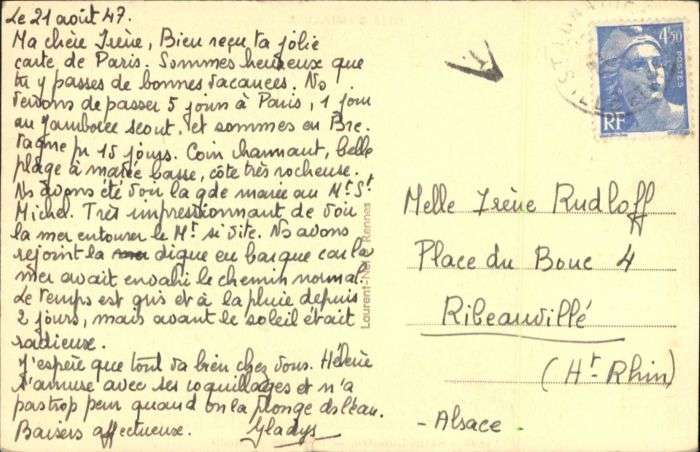 Le 21 août 47.
Ma chère Irène, Bien reçu ta jolie
carte de Paris. Sommes heureux que
tu y passes de bonnes vacances. Ns
venons de passer 5 jours à Paris, 1 jour
au Jamboree scout, et sommes en Bre-
tagne pr 15 jours. Coin charmant, belle
plage à marée basse, côte très rocheuse.
Ns avons été voir la gde marée au Mt St
Michel. Très impressionnant de voir
la mer entourer le Mt si vite. Ns avons
rejoint la digue en barque car la
mer avait envahi le chemin normal.
Le temps est gris et à la pluie depuis
2 jours, mais avant le soleil était
radieux.
J'espère que tout va bien chez vous. Hélène
s'amuse avec ses coquillages et n'a
pas trop peur quand on la plonge ds l'eau.
Baisers affectueux. Gladys
Laurent- Rennes
4F50
POSTES
RF
Melle Irène Rudloff
Place du Bouc 4
Ribeauvillé
(Ht Rhin)
- Alsace